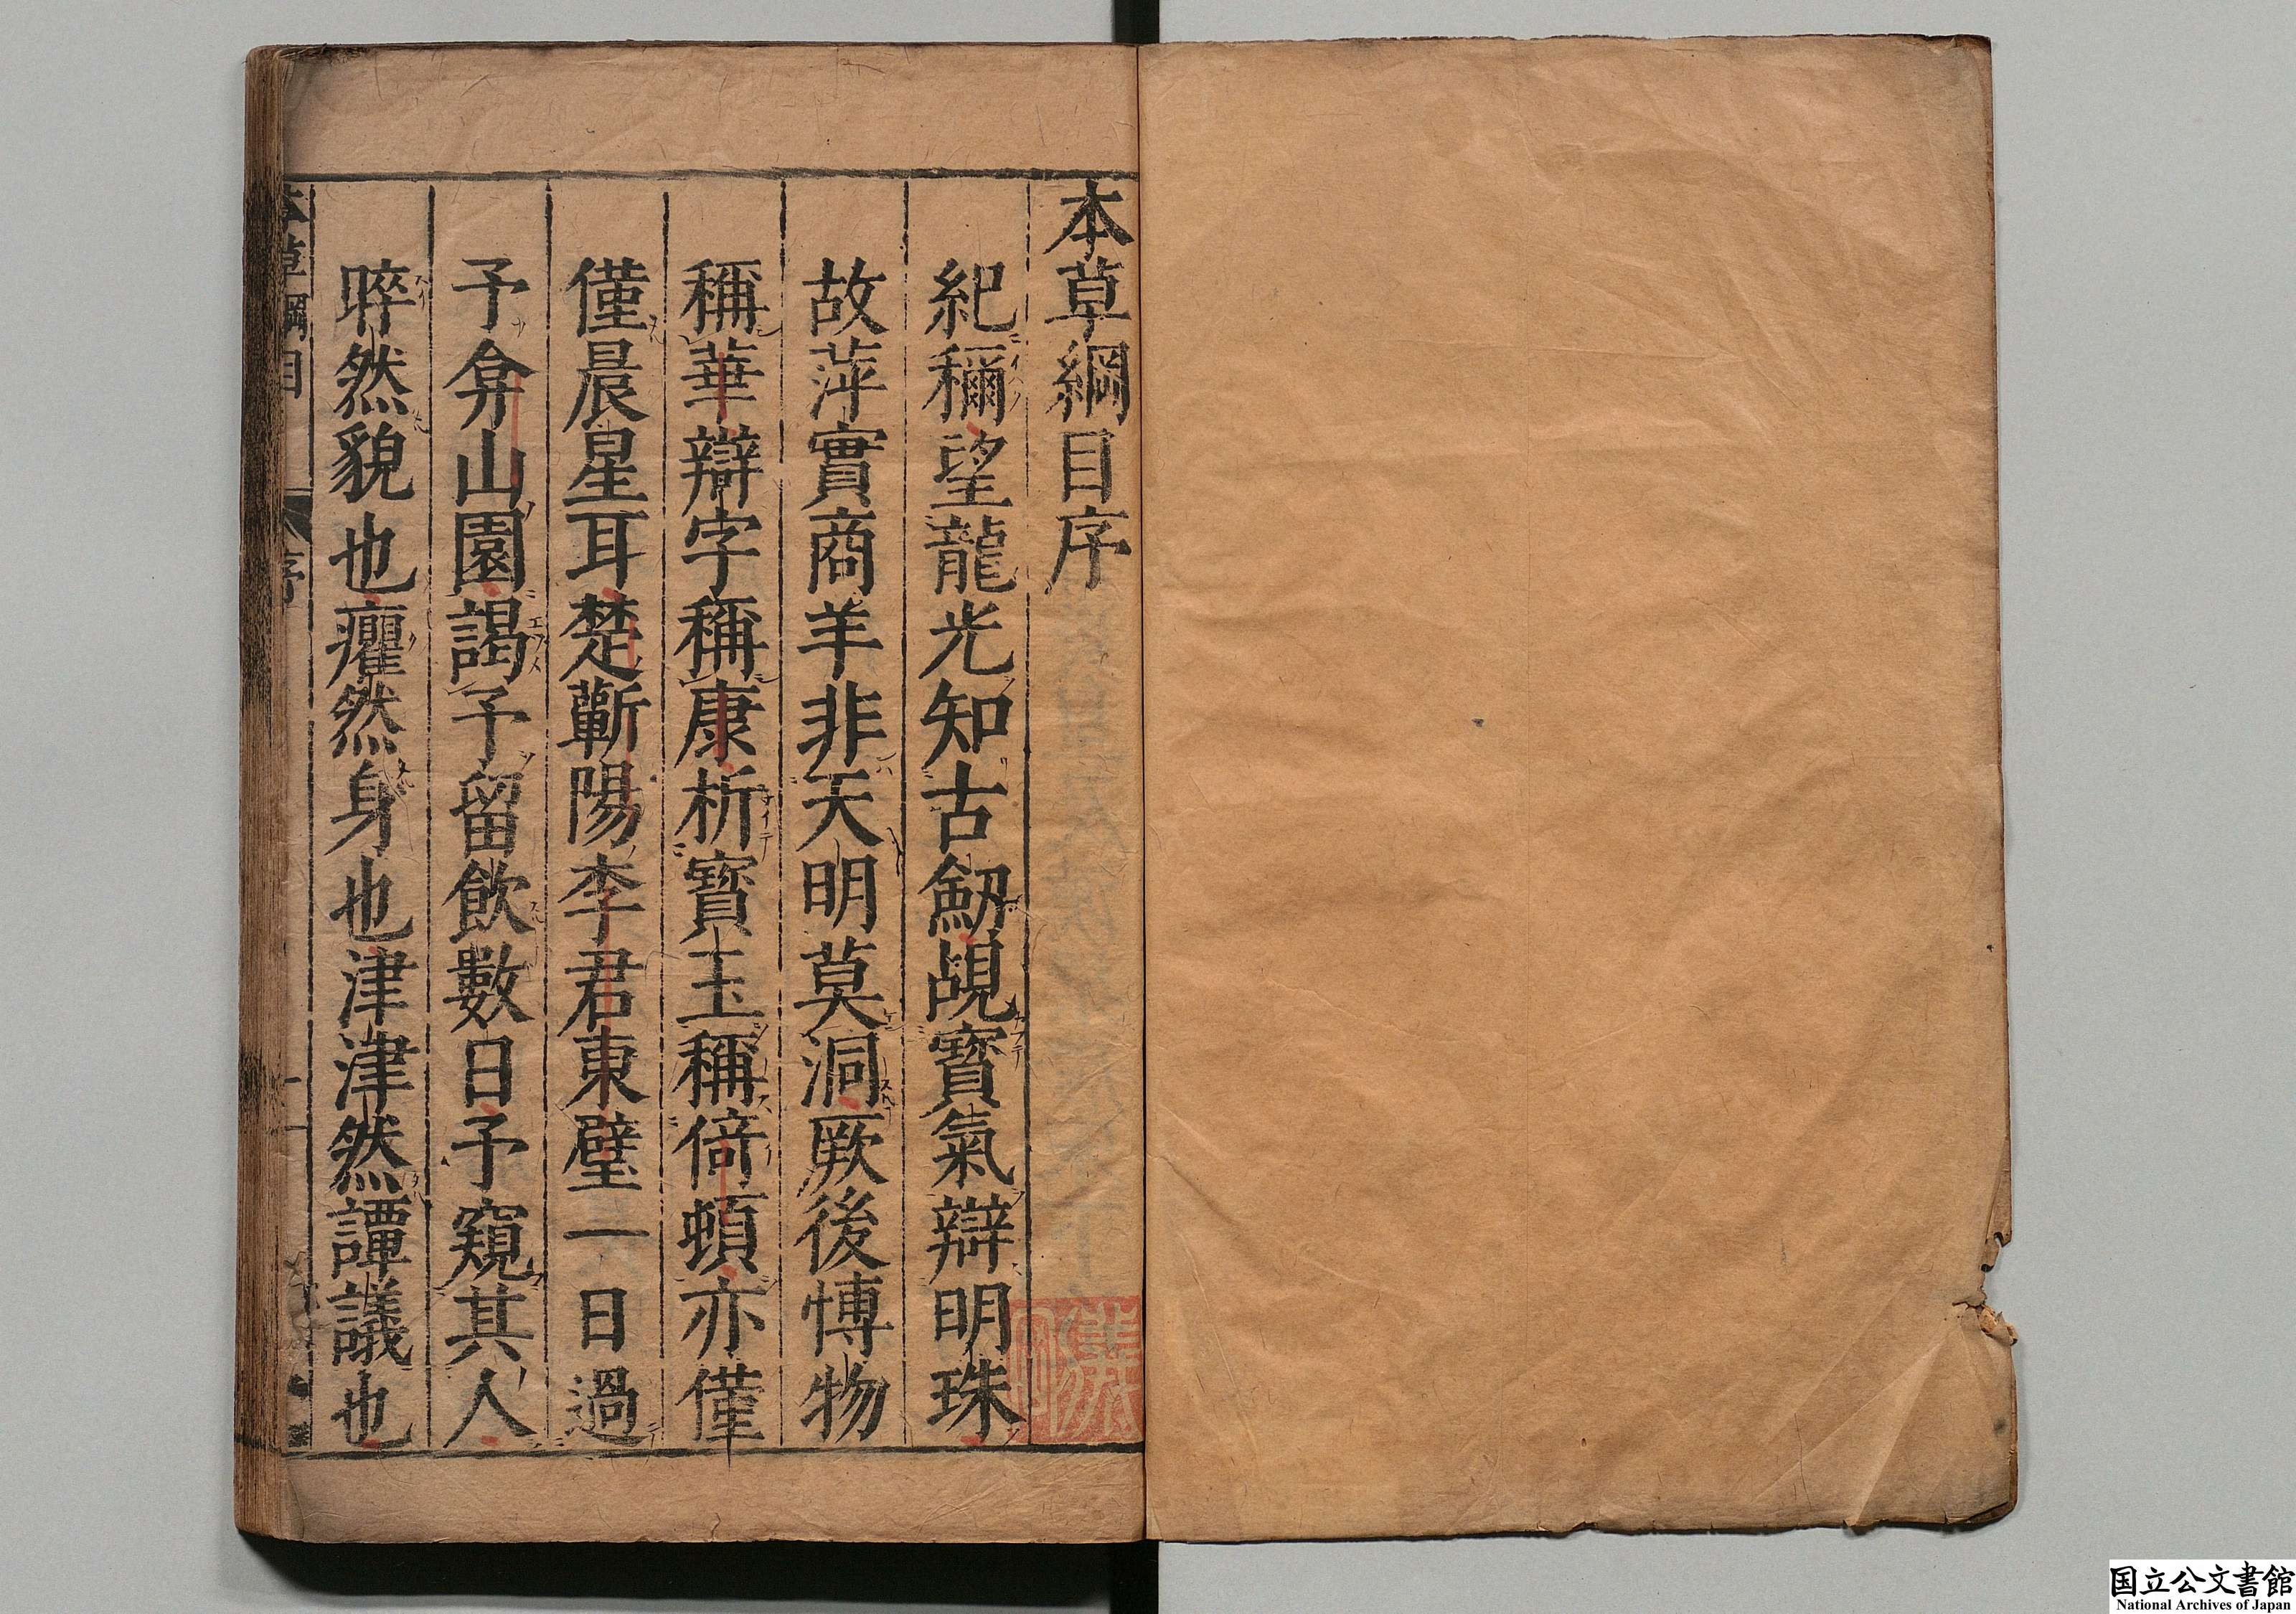 本草綱目序
紀稱望龍光知古劒覘寶氣辯明珠
故萍實商羊非天明莫洞厥後博物
稱華辯字稱康析寶玉稱倚頓亦僅
僅晨星耳楚蘄陽李君東璧一日過
予弇山園謁予留飲數日予窺其人
睟然貌也癯然身也津津然譚議也
本草綱目
序
国立公文書館
National Archives of Japan